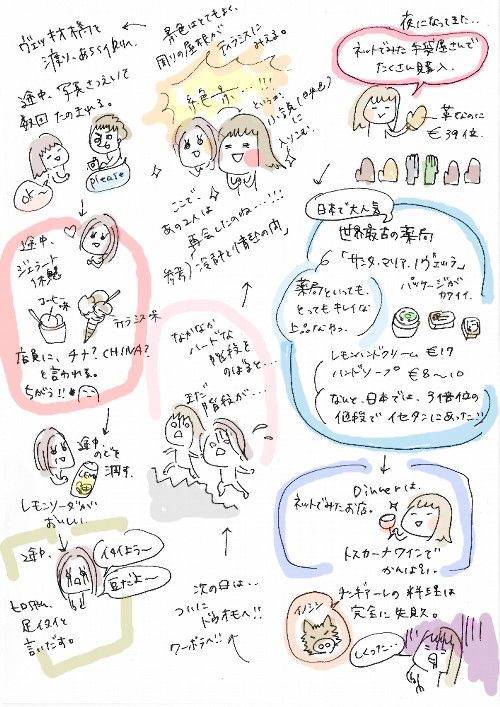 ヴェッキオ橋を
渡り、あちら側へ。
途中、写真さつえいして
数回たのまれる。
OK
please
途中、
ジェラート
休憩
コーヒー
味
ティラミス味
店員に、チナ?CHINA?
と言われる。
ちがう!!
途中
のどを
潤す。
レモンソーダが
おいしい
途中、
イタイよう〜
豆だよ〜
足イタイと
言いだす。
景色はとてもよく、
周りの屋根が
ティラミスに
みえる。
ここで
あの2人は
再会したのね…!!
参考)冷静と情熱の間」
なかなか
ハードな
階段を
のぼると…
まだ
階段が…
次の日は…
ついに
ドゥオモへ!!
夜になってきた…
ネットでみた手袋屋さんで
たくさん購入。
革なのに
€39位.
日本で大人気
世界最古の薬局
「サンタ・マリア・ノヴェッラ」
パッケージが
カワイイ.
薬局といっても、
とってもキレイな
上品なかんじ。
レモンハンドクリーム €17
ハンドソープ €8〜10
なんと、日本では、3倍位の
価段でイセタンにあった!!
Dinnerは、
ネットでみたお店。
トスカーナワインで
かんぱい。
イノシシ
チンギアーレの料理は
完全に失敗。
しくった…